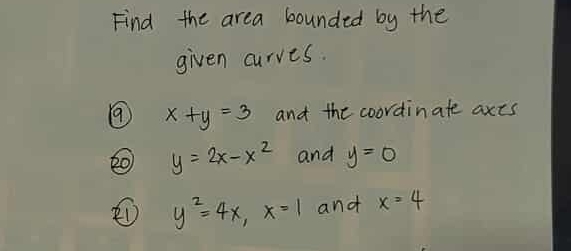 Find the area bounded by the
given curves.
⑲ x + y = 3 and the coordinate axes
⑳ y = 2x - x² and y = 0
㉑ y² = 4x, x = 1 and x = 4